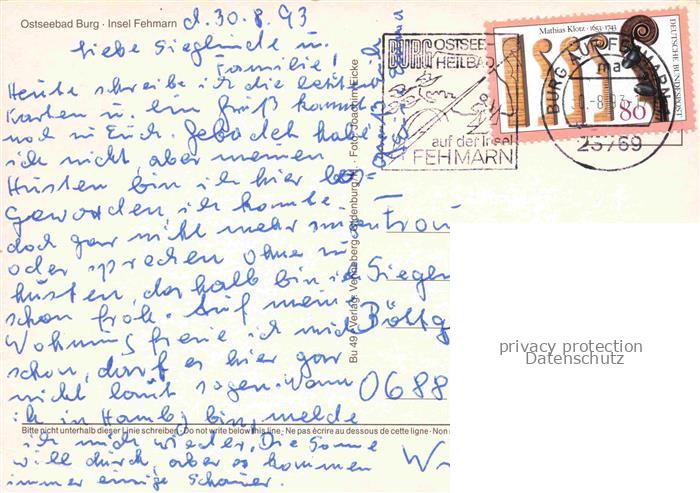 Ostseebad Burg · Insel Fehmarn
d. 30.8.93
Liebe Sieglinde u.
Familie!
Heute schreibe ich die letzten
Karten u. ein Gruß kommt
noch zu Euch. Gebadet habe
ich nicht, aber meinen
Husten bin ich hier los
geworden, ich konnte
doch gar nicht mehr
oder sprechen ohne zu
husten, deshalb bin ich
schon froh. Auf meine
Wohnung freue ich mich
schon, darf es hier gar
nicht laut sagen. Wann
ich in Hambg bin, melde
ich mich wieder. Die Sonne
will durch, aber es kommen
immer einige Schauer.
Bitte nicht unterhalb dieser Linie schreiben · Do not write below this line · Ne pas écrire au dessous de cette ligne · Non
Bu 49 · Verlag: Venneberg, Oldenburg/H. · Foto: Joachim Eicke
BURG OSTSEE
HEILBAD
auf der Insel
FEHMARN
Mathias Klotz · 1653-1743
DEUTSCHE BUNDESPOST
80
BURG AUF FEHMARN
ma
23769
Frau
Siegl
Böttg
0688
privacy protection
Datenschutz